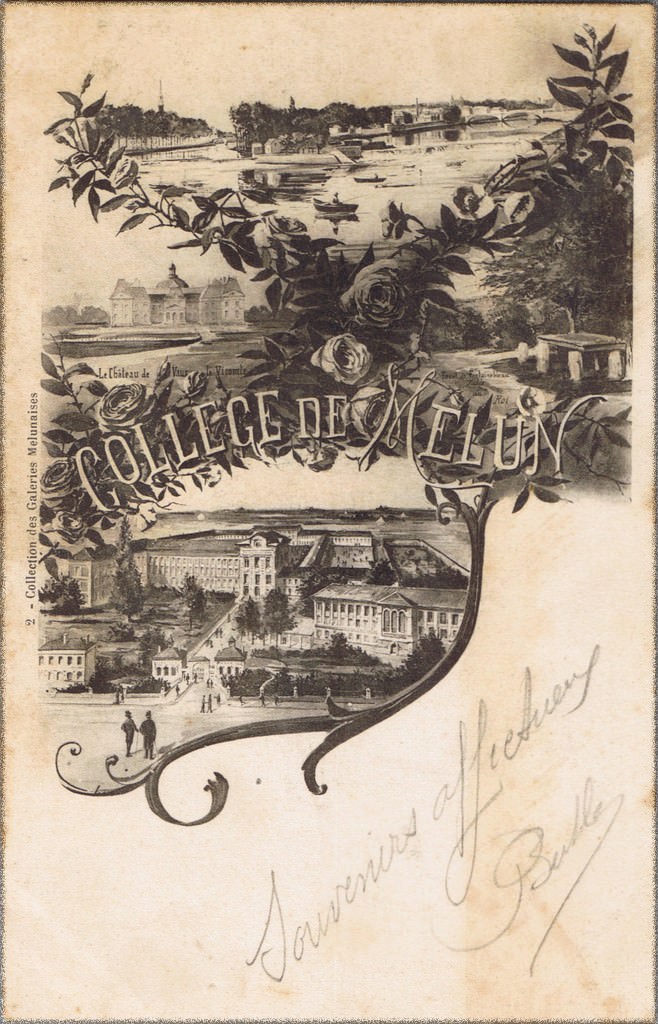 Le Château de Vaux le Vicomte
COLLEGE DE MELUN
2 - Collection des Galeries Melunaises
Souvenirs affectueux